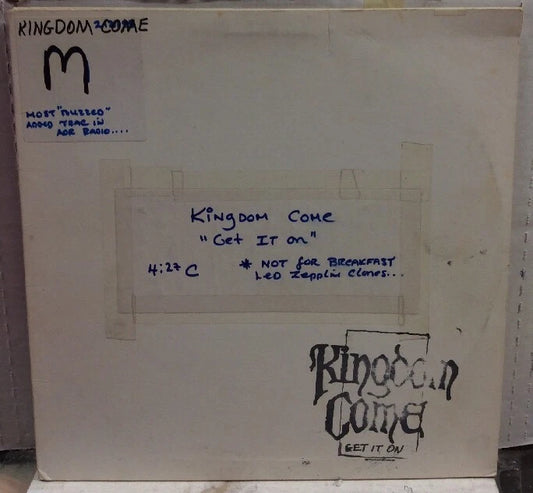 KINGDOM COME
M
MOST "BUZZED"
ADDED TRAC IN
AOR RADIO....
Kingdom Come
"Get IT on"
4:27 C * NOT FOR BREAKFAST
Led Zepplin Clones...
Kingdom
Come
GET IT ON